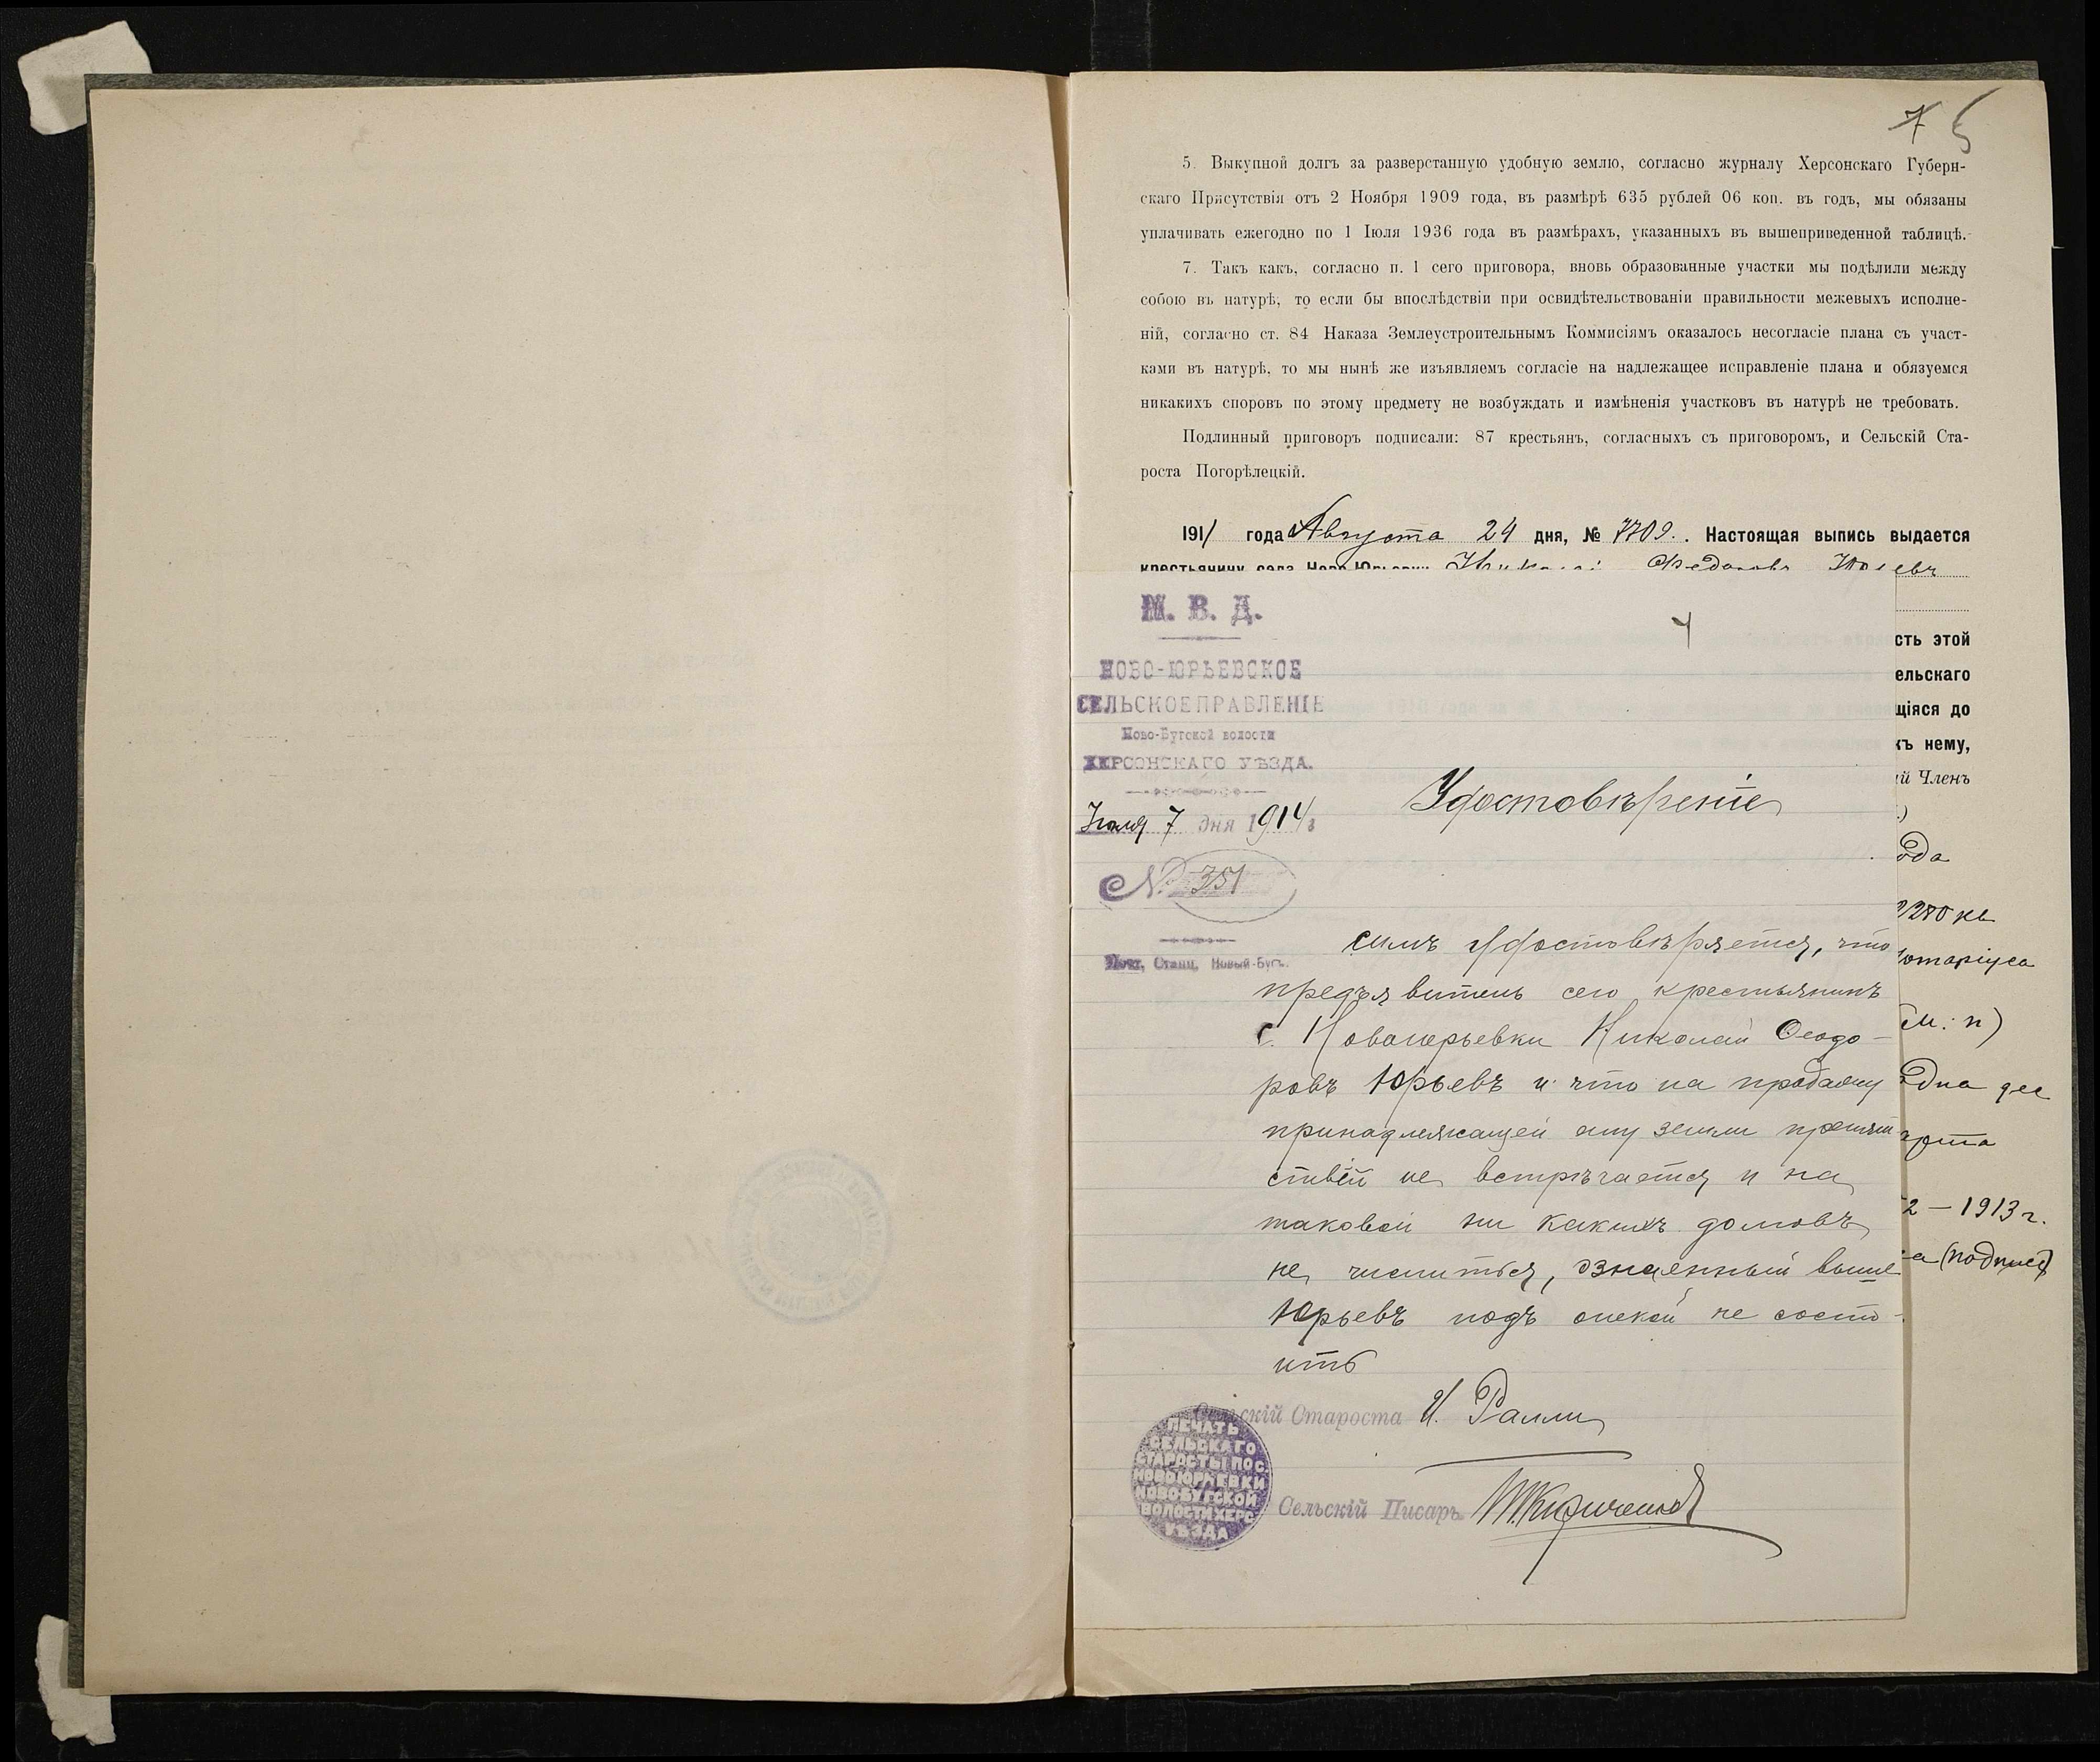 7 5
5. Выкупной долгъ за разверстанную удобную землю, согласно журналу Херсонскаго Губерн-
скаго Присутствія отъ 2 Ноября 1909 года, въ размѣрѣ 635 рублей 06 коп. въ годъ, мы обязаны
уплачивать ежегодно по 1 Іюля 1936 года въ размѣрахъ, указанныхъ въ вышеприведенной таблицѣ.
7. Такъ какъ, согласно п. 1 сего приговора, вновь образованные участки мы подѣлили между
собою въ натурѣ, то если бы впослѣдствіи при освидѣтельствованіи правильности межевыхъ исполне-
ній, согласно ст. 84 Наказа Землеустроительнымъ Коммисіямъ оказалось несогласіе плана съ участ-
ками въ натурѣ, то мы нынѣ же изъявляемъ согласіе на надлежащее исправленіе плана и обязуемся
никакихъ споровъ по этому предмету не возбуждать и измѣненія участковъ въ натурѣ не требовать.
Подлинный приговоръ подписали: 87 крестьянъ, согласныхъ съ приговоромъ, и Сельскій Ста-
роста Погорѣлецкій.
1911 года Августа 24 дня, № 7709. Настоящая выпись выдается
крестьянину села Ново-Юрьевки
М. В. Д.
4
НОВО-ЮРЬЕВСКОЕ
СЕЛЬСКОЕ ПРАВЛЕНІЕ
Ново-Бугской волости
ХЕРСОНСКАГО УѢЗДА.
Іюля 7 дня 1914 г
№ 351
Почт. Станц. Новый-Бугъ.
Удостовѣреніе
симъ удостовѣряется, что
предъявитель сего крестьянинъ
с. Новоюрьевки Николай Ѳеодо-
ровъ Юрьевъ и что на продажу
принадлежащей ему земли препят
ствій не встрѣчается и на
таковой ни какихъ долговъ
не числиться, означенный выше
Юрьевъ подъ опекой не состо-
итъ
Сельскій Староста И. Ралли
Сельскій Писарь
ПЕЧАТЬ
СЕЛЬСКАГО
СТАРОСТЫ ПОС.
НОВОЮРЬЕВКИ
НОВОБУГСКОЙ
ВОЛОСТИ ХЕРС.
УѢЗДА
сть этой
ельскаго
щіяся до
къ нему,
ій Членъ
ода
2280 кв
отаріуса
(М: п)
Одна дес
рта
2 – 1913 г.
а (подпись)